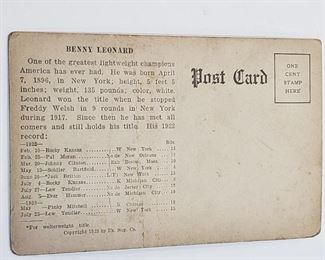 BENNY LEONARD
One of the greatest lightweight champions
America has ever had. He was born April
7, 1896, in New York; height, 5 feet 5
inches; weight, 135 pounds; color, white.
Leonard won the title when he stopped
Freddy Welsh in 9 rounds in New York
during 1917. Since then he has met all
comers and still holds his title. His 1922
record:
—1922— Rds
Feb. 10—Rocky Kansas W New York 15
Feb. 25—Pal Moran Nd New Orleans 10
Mar. 20—Johnny Clinton Boston, Mass. 10
May 13—Soldier Bartfield W New York
June 26—*Jack Britton L F New York 13
July 4—Rocky Kansas K Michigan City
July 27—Lew Tendler Nd Jersey City 12
Aug. 5—Ever Hammer Nd Michigan City
—1923—
May —Pinky Mitchell K Chicago
July 23—Lew Tendler W New York 15
*For welterweight title.
Copyright 1923 by Ex. Sup. Co.
Post Card
ONE
CENT
STAMP
HERE